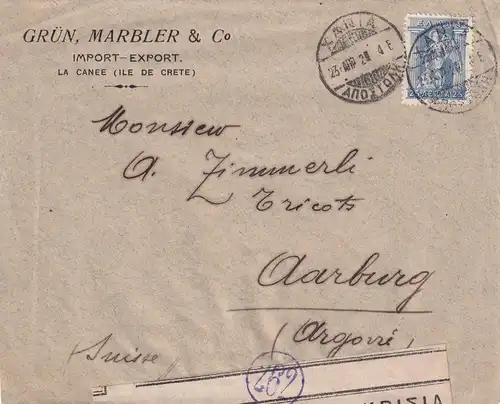 GRÜN, MARBLER & Co
IMPORT-EXPORT.
LA CANEE (ILE DE CRETE)
ΧΑΝΙΑ
ΑΠΟΣΤΟΛΗ
Monsieur
A. Zimmerli
Tricots
Aarburg
(Argovie)
Suisse